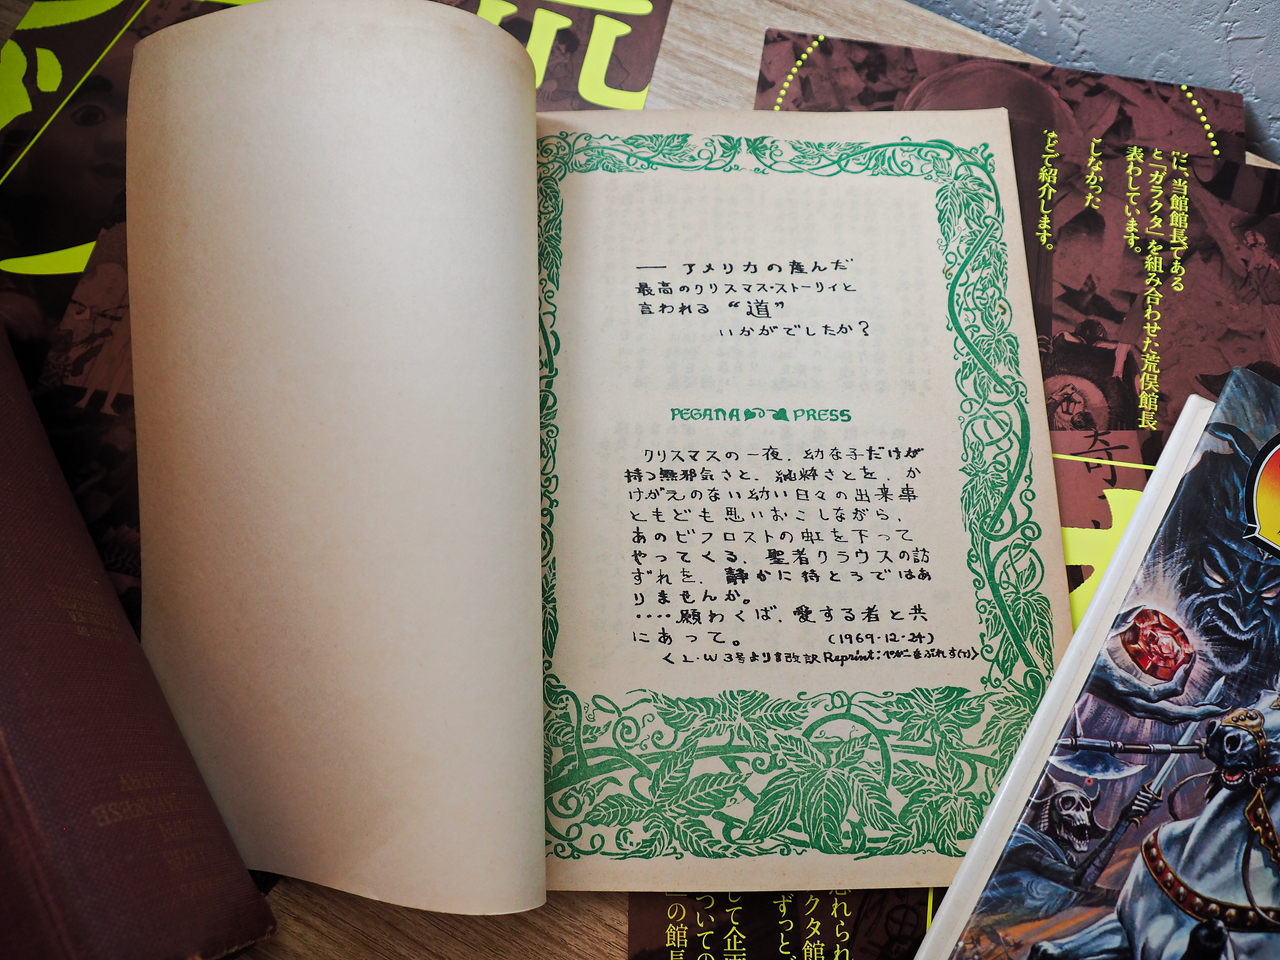 ── アメリカの産んだ
最高のクリスマス・ストーリィと
言われる “道”
いかがでしたか?
PEGANA PRESS
クリスマスの一夜、幼な子だけが
持つ無邪気さと、純粋さとを、か
けがえのない幼い日々の出来事
ともども思いおこしながら、
あのビフロストの虹を下って
やってくる、聖者クラウスの訪
ずれを、静かに待とうではあ
りませんか。
‥‥願わくば、愛する者と共
にあって。 (1969-12-24)
<L.W 3号より改訳 Reprint:ペガーナぷれす(T)>
に、当館館長である
と「ガラクタ」を組み合わせた荒俣館長
表わしています。
しなかった
などで紹介します。
奇
忘れられ
クタ館
ずっと
して企画
ついての
」の館長